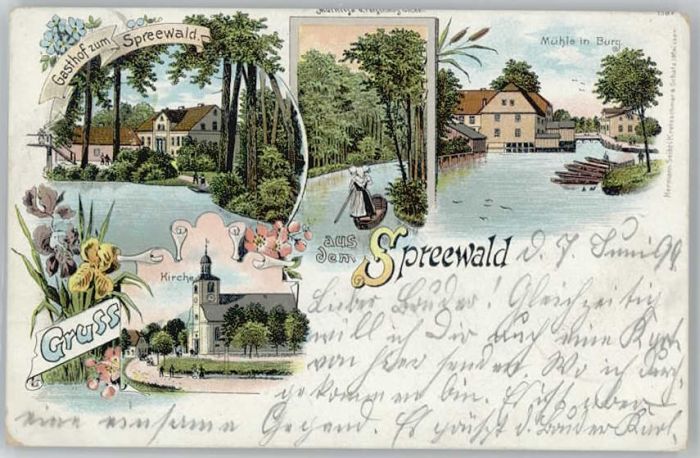 Gasthof zum Spreewald.
Mühle in Burg
Kirche
Gruss
aus dem Spreewald
d. 7. Juni 99
Lieber Bruder! Gleichzeitig
will ich Dir auch eine Kart
von hier senden. Wo ich
gekommen bin. Es ist aber
eine einsame Gegend. Es grüßt d. Bruder Karl.